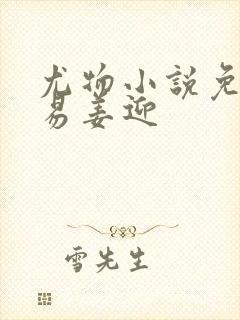 尤物小說免
易姜迎
雪先生